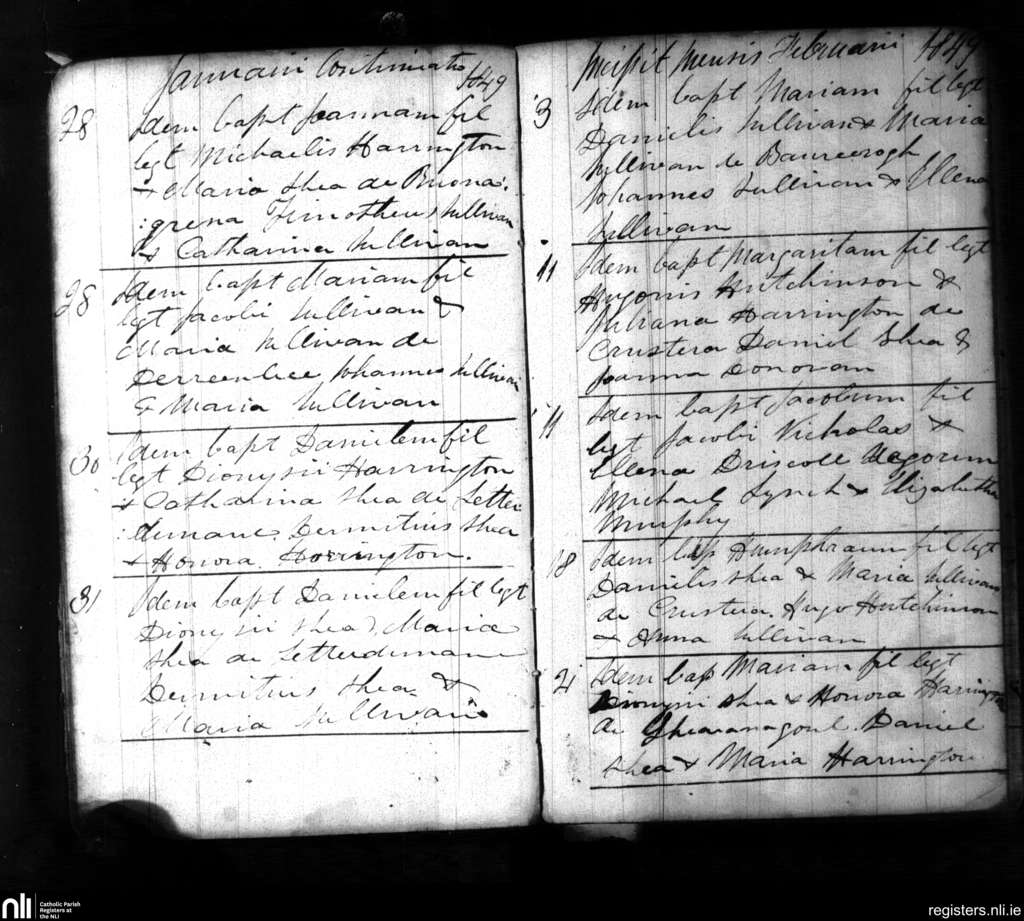 Januarii Continuatio 1849
28 Idem bapt Joannam fil
legt Michaelis Harrington
& Maria Shea de Buona:
:grena Timotheus Sullivan
& Catharina Sullivan
28 Idem bapt Mariam fil
legt Jacobi Sullivan &
Maria Sullivan de
Derreenbee Johannes Sullivan
& Maria Sullivan
30 Idem bapt Danielem fil
legt Dionysii Harrington
& Catharina Shea de Letter
:dunane Dermitius Shea
& Honora Harrington.
31 Idem bapt Danielem fil legt
Dionysii Shea & Maria
Shea de Letterdunane
Dermitius Shea &
Maria Sullivan
Incipit mensis Februarii 1849
3 Idem bapt Mariam fil legt
Danielis Sullivan & Maria
Sullivan de
Johannes Sullivan & Ellena
Sullivan
11 Idem bapt Margaritam fil legt
Hugonis Hutchinson &
Juliana Harrington de
Crustera Daniel Shea &
Joanna Donovan
11 Idem bapt Jacobum fil
legt Jacobi Nicholas &
Ellena Driscoll
Michael Lynch & Elizabetha
Murphy
18 Idem bap Humphraum fil legt
Danielis Shea & Maria Sullivan
de Crustera. Hugo Hutchinson
& Anna Sullivan
21 Idem bap Mariam fil legt
Dionysii Shea & Honora Harrington
de Daniel
Shea & Maria Harrington
nli
Catholic Parish
Registers at
the NLI
registers.nli.ie